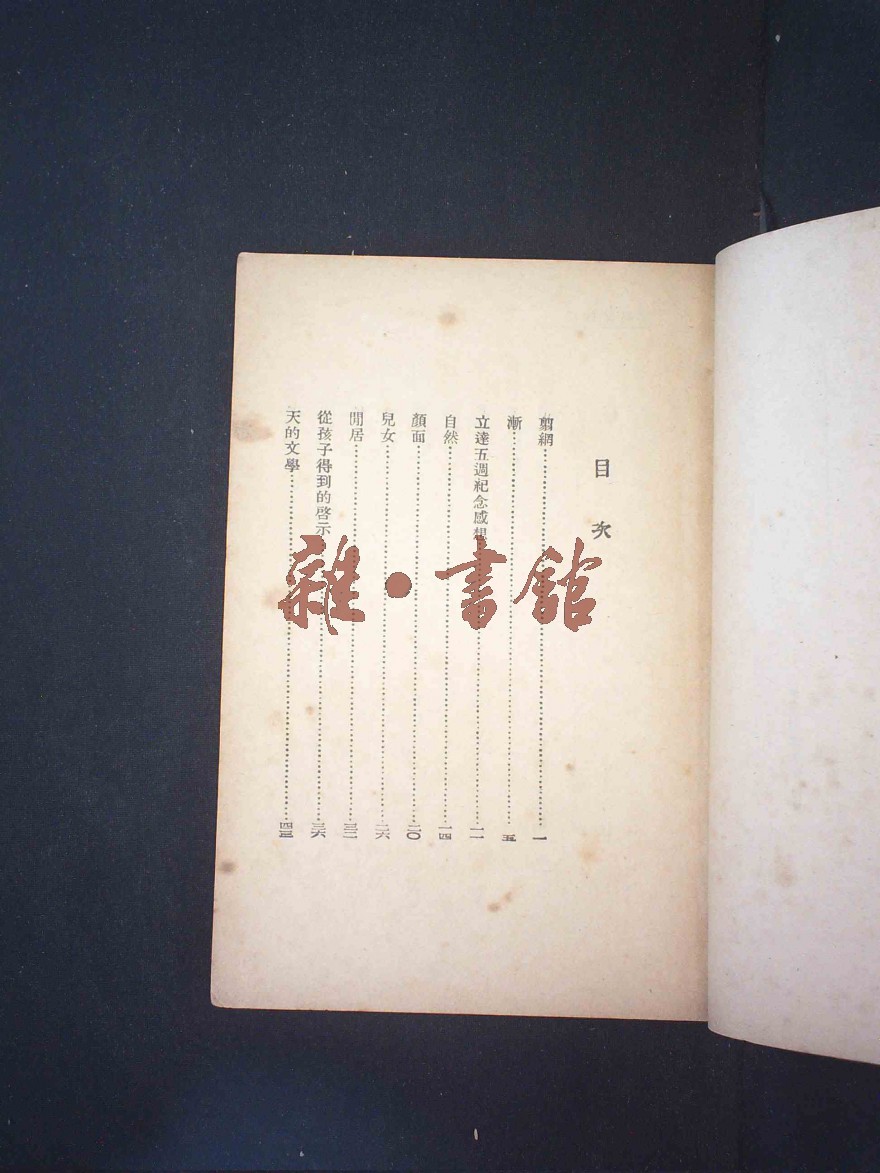 目次
剪網 一
漸 五
立達五週紀念感想 一一
自然 一四
顏面 二〇
兒女 二六
閒居 三二
從孩子得到的啓示 三六
天的文學 四三
雜·書館